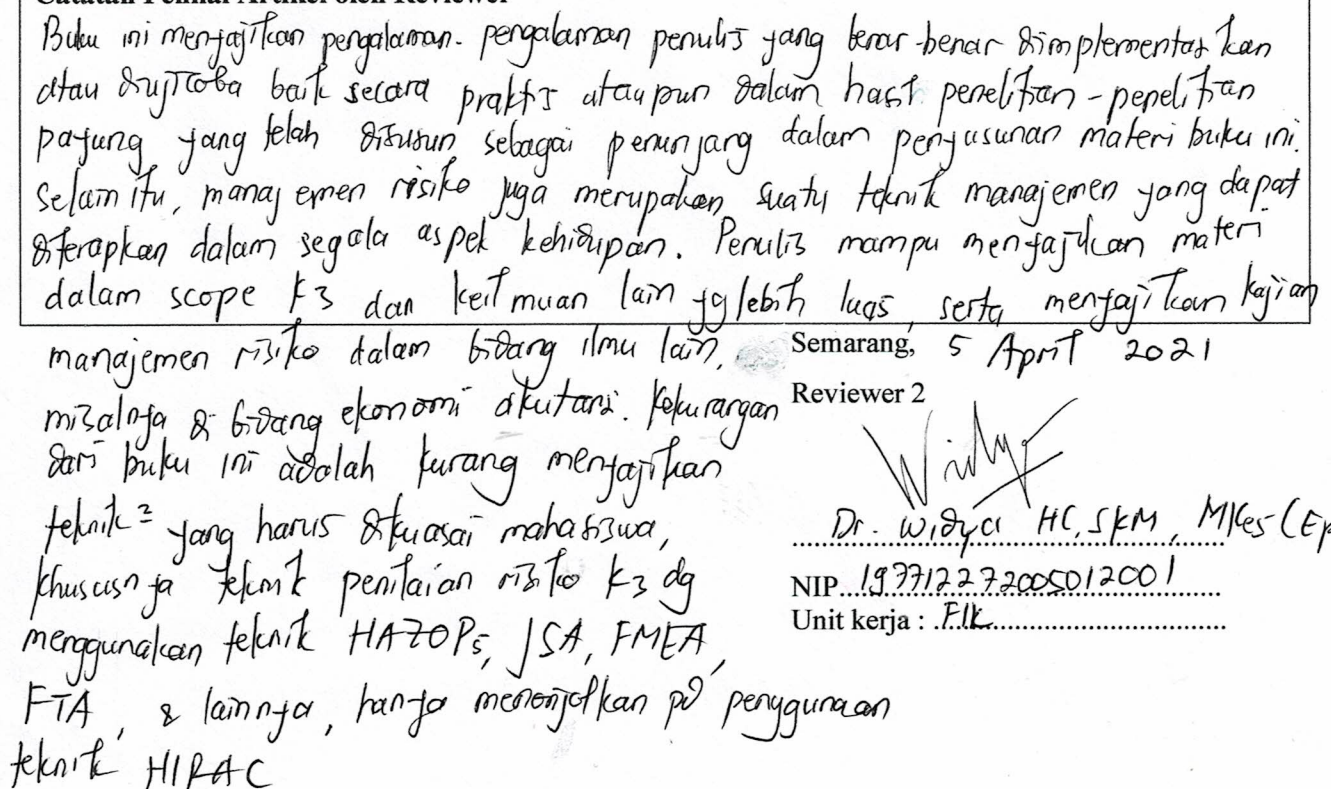 Catatan Penilai Artikel oleh Reviewer
Buku ini menyajikan pengalaman-pengalaman penulis yang benar-benar diimplementasikan
atau diujicoba baik secara praktis ataupun dalam hasil penelitian-penelitian
payung yang telah disusun sebagai penunjang dalam penyusunan materi buku ini.
Selain itu, manajemen risiko juga merupakan suatu teknik manajemen yang dapat
diterapkan dalam segala aspek kehidupan. Penulis mampu menyajikan materi
dalam scope K3 dan keilmuan lain yg lebih luas, serta menyajikan kajian
manajemen risiko dalam bidang ilmu lain,
misalnya di bidang ekonomi akutansi. Kekurangan
dari buku ini adalah kurang menyajikan
teknik² yang harus dikuasai mahasiswa,
khususnya teknik penilaian risiko K3 dg
menggunakan teknik HAZOPs, JSA, FMEA,
FTA, & lainnya, hanya menonjolkan pd penggunaan
teknik HIRAC
Semarang, 5 April 2021
Reviewer 2
Widya
Dr. Widya HC, SKM, MKes (Ep
NIP. 197712272005012001
Unit kerja : FIK